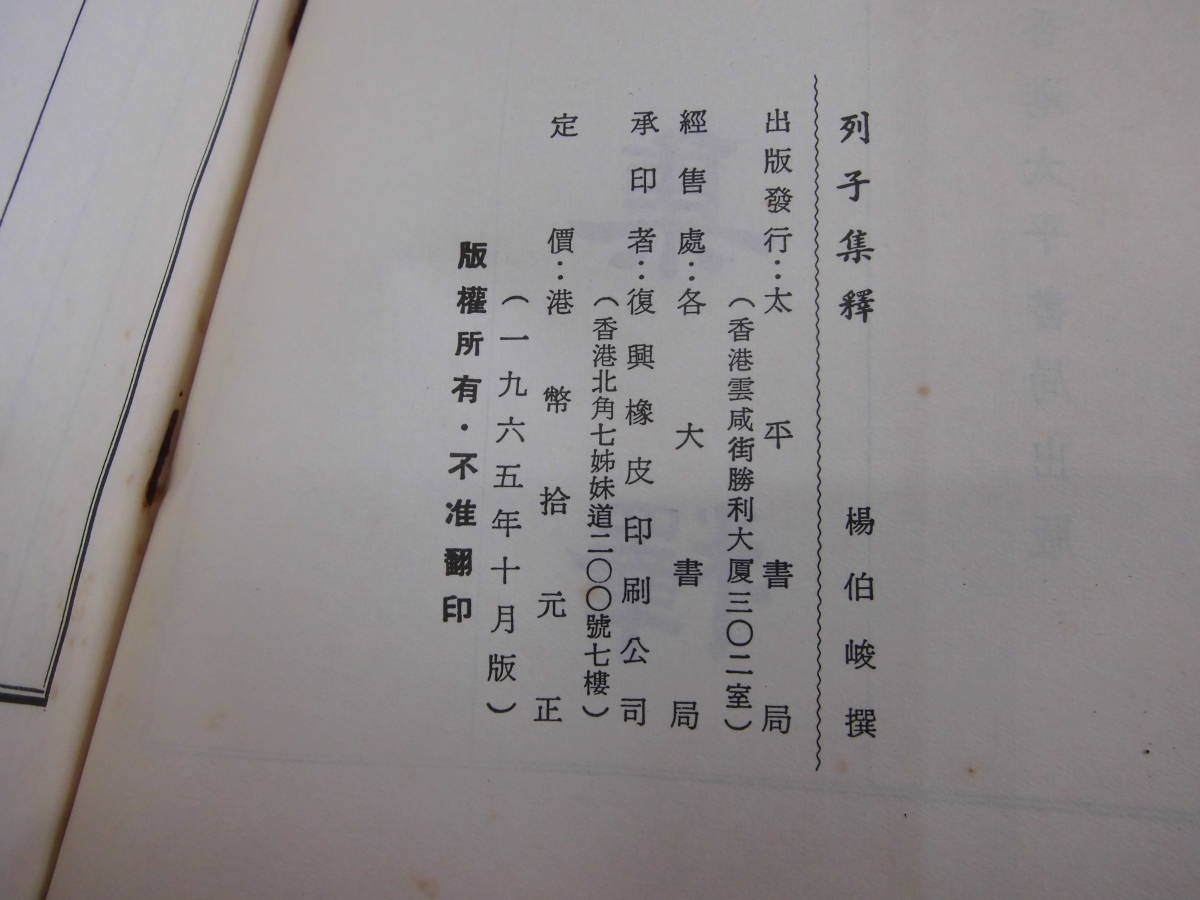 列子集釋　楊伯峻撰
出版發行：太平書局
（香港雲咸街勝利大厦三〇二室）
經售處：各大書局
承印者：復興橡皮印刷公司
（香港北角七姊妹道二〇〇號七樓）
定價：港幣拾元正
（一九六五年十月版）
版權所有·不准翻印